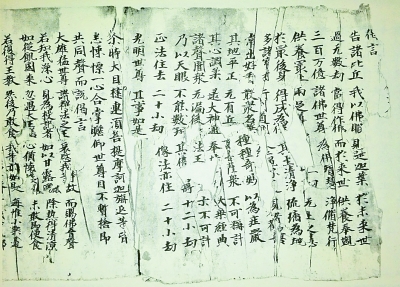 偈言
告諸比丘 我以佛眼 見是迦葉 於未來世
過无數劫 當得作佛 而於來世 供養奉覲
三百万億 諸佛世尊 為佛智慧 淨修梵行
供養最上 二足尊 无上之慧
於最後身 得成為佛 其土清淨 琉璃為地
多諸寶樹 行列道側
常出好香 散衆名華 種種奇妙 以為莊嚴
其地平正 无有丘 菩薩衆 不可稱計
其心調柔 逮大神通 奉 大乘經典
諸聲聞衆 无漏後 法王 亦不可計
乃以天眼 不能數知 其佛 壽十二小劫
正法住世 二十小劫 像法亦住 二十小劫
光明世尊 其事如是
尒時大目揵連須菩提摩訶迦旃延等皆
悉悚慄一心合掌瞻仰世尊目不暫捨即
共同聲而說偈言
大雄猛世尊 諸釋之法王 哀愍我等故 而賜佛音聲
若知我深心 見為授記者 如以甘露灑 除熱得清涼
如從飢國來 忽遇大王饍 心猶懷疑懼 未敢即便食
若復得王教 然後乃敢食 我等亦如是 每惟小乘過